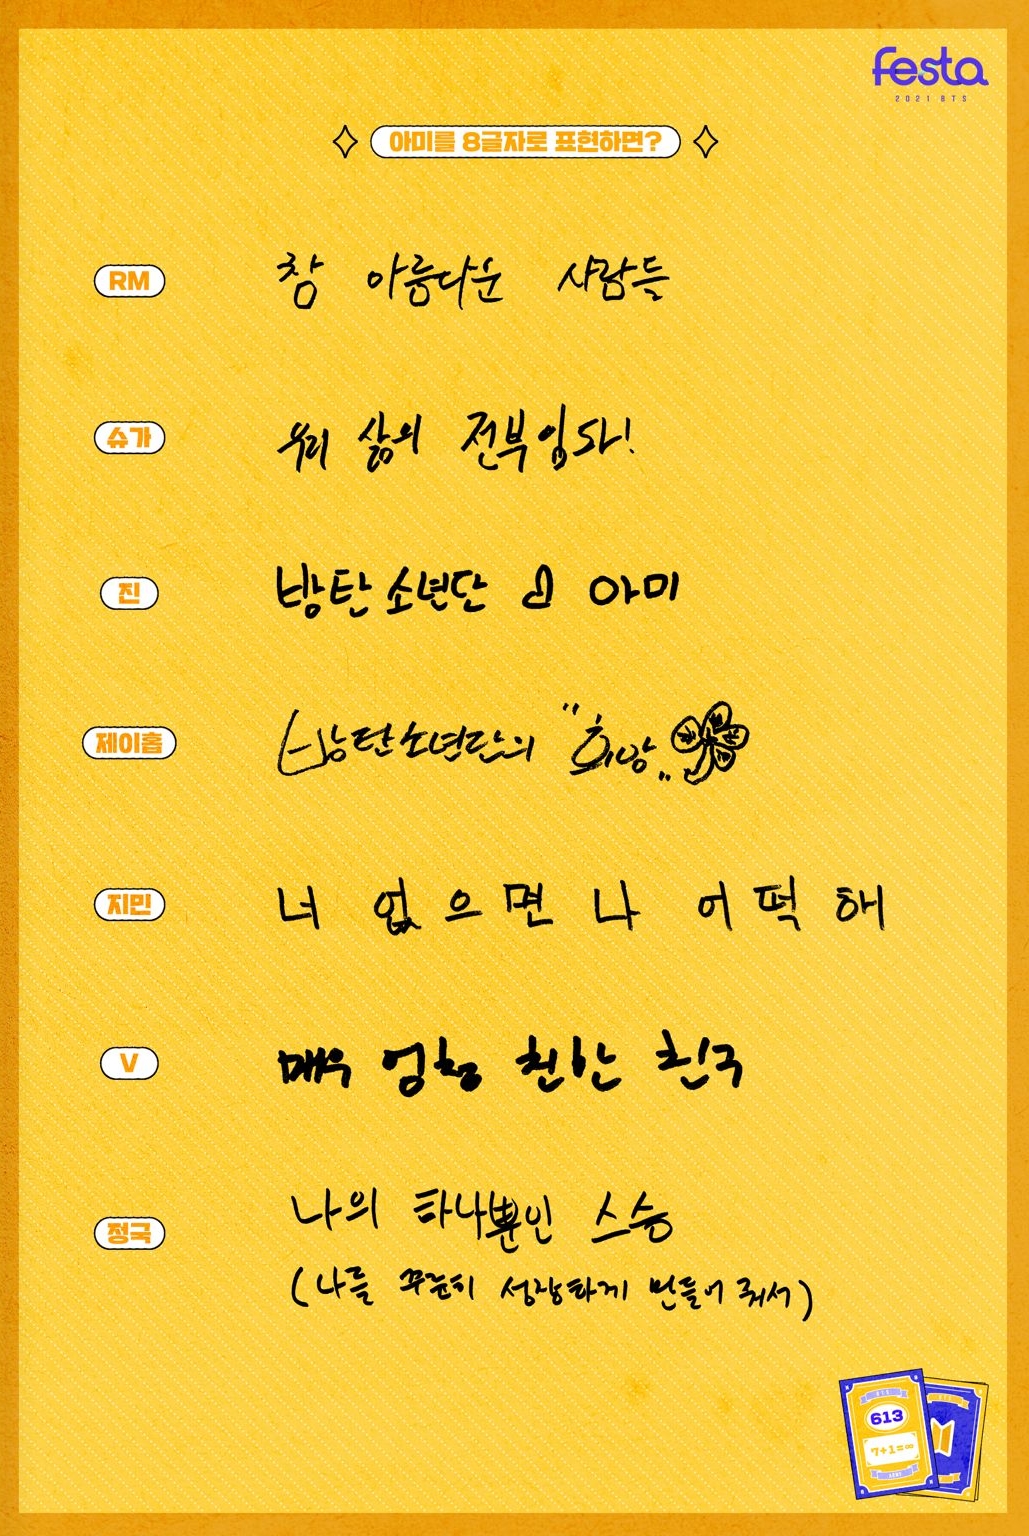 festa
2021 BTS
아미를 8글자로 표현하면?
RM 참 아름다운 사람들
슈가 우리 삶의 전부입니다!
진 방탄소년단 아미
제이홉 방탄소년단의 "희망"
지민 너 없으면 나 어떡해
V 매우 엄청 친한 친구
정국 나의 하나뿐인 스승
(나를 꾸준히 성장하게 만들어 줘서)
613
7+1=∞